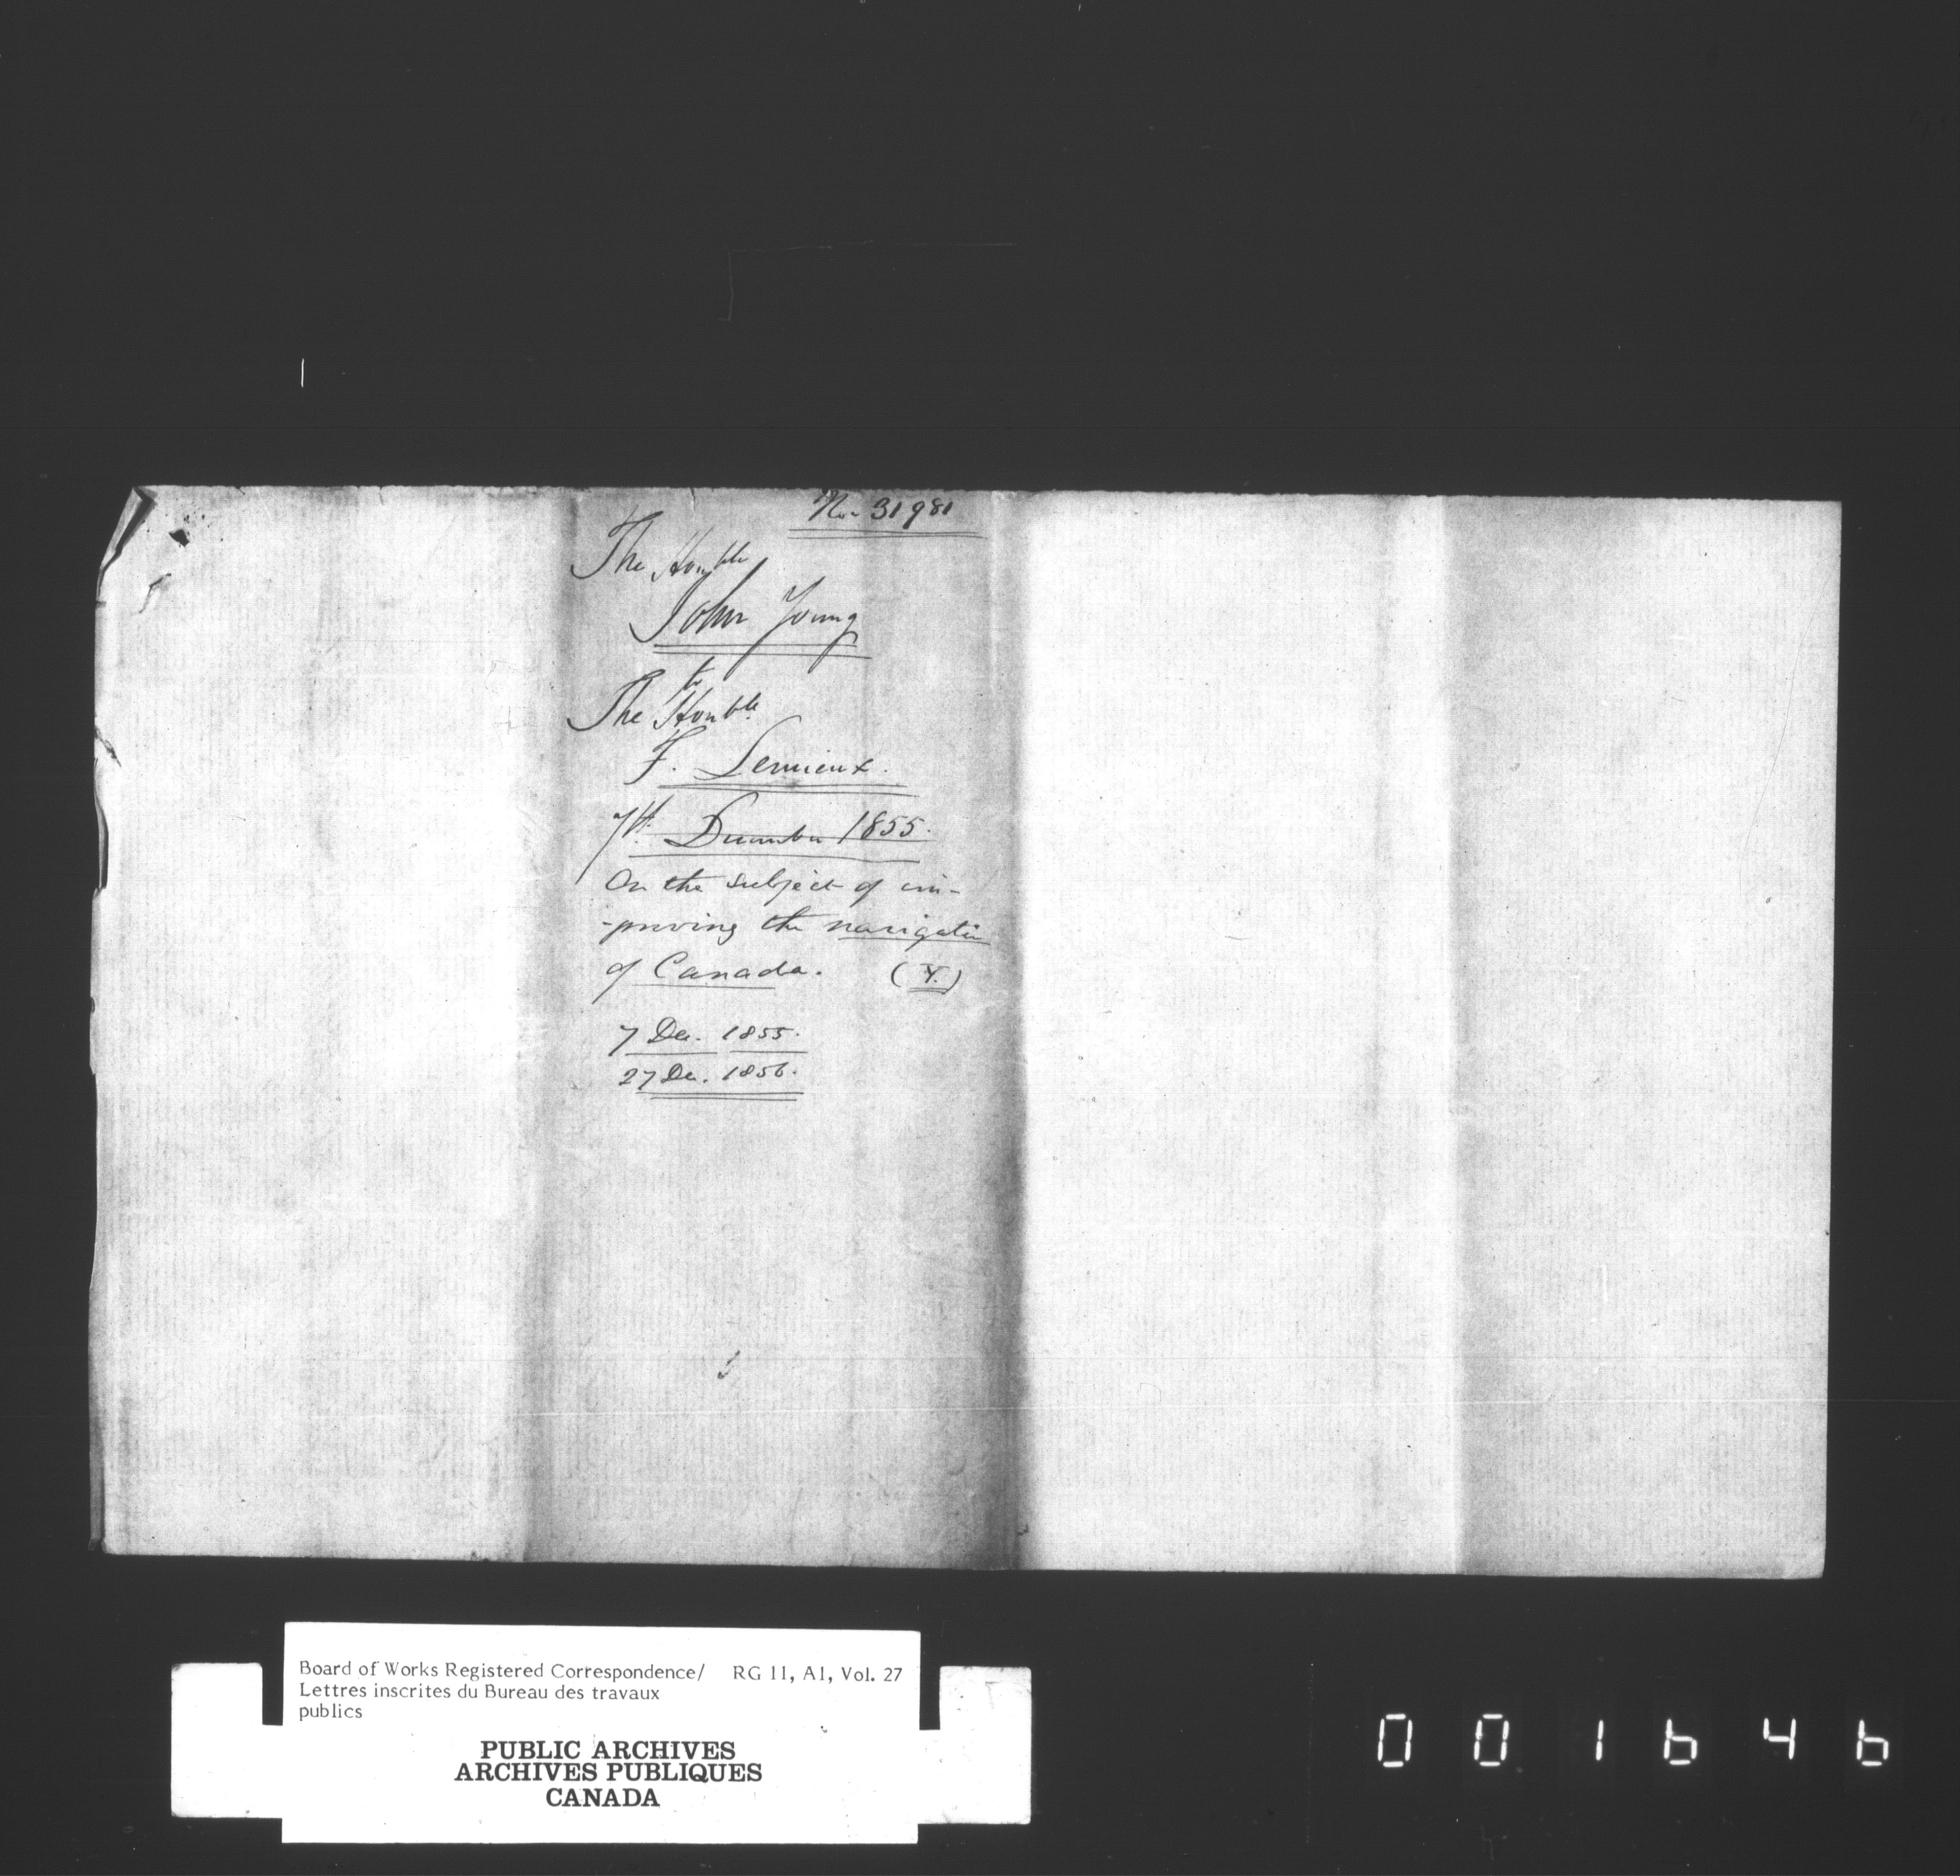 No 31981
The Honble
John Young
to
The Honble
F. Lemieux.
7th December 1855.
On the subject of im-
-proving the navigation
of Canada. (Y.)
7 Dec. 1855.
27 Dec. 1856.
Board of Works Registered Correspondence/ RG 11, A1, Vol. 27
Lettres inscrites du Bureau des travaux
publics
PUBLIC ARCHIVES
ARCHIVES PUBLIQUES
CANADA
001646